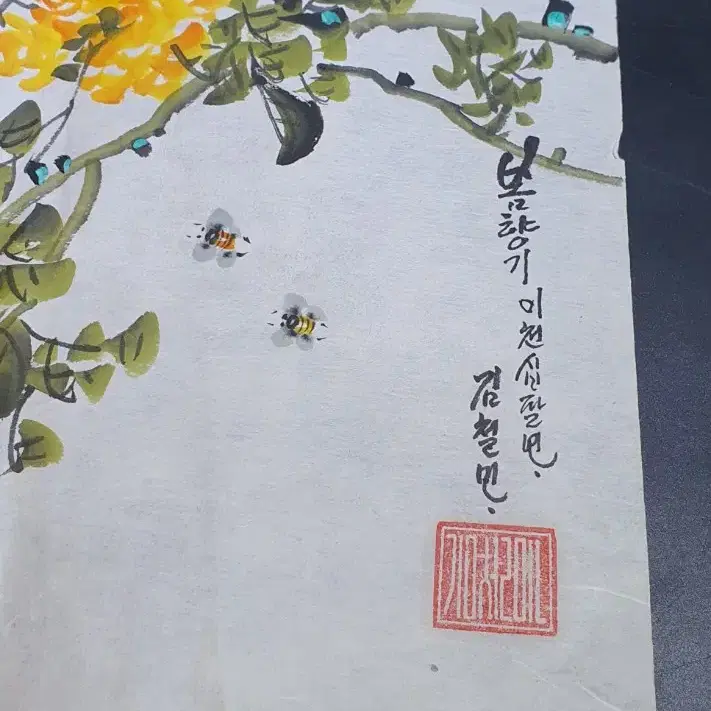 봄향기 이천십팔년.
김철민.
김철민